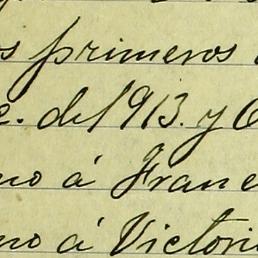 s primeros
c. de 1913. y
no á Franc
no á Victori